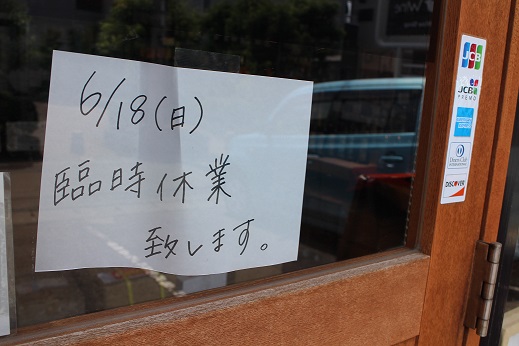 6/18(日)
臨時休業
致します。
JCB
JCB
PREMO
AMERICAN EXPRESS
Diners Club
INTERNATIONAL
DISCOVER